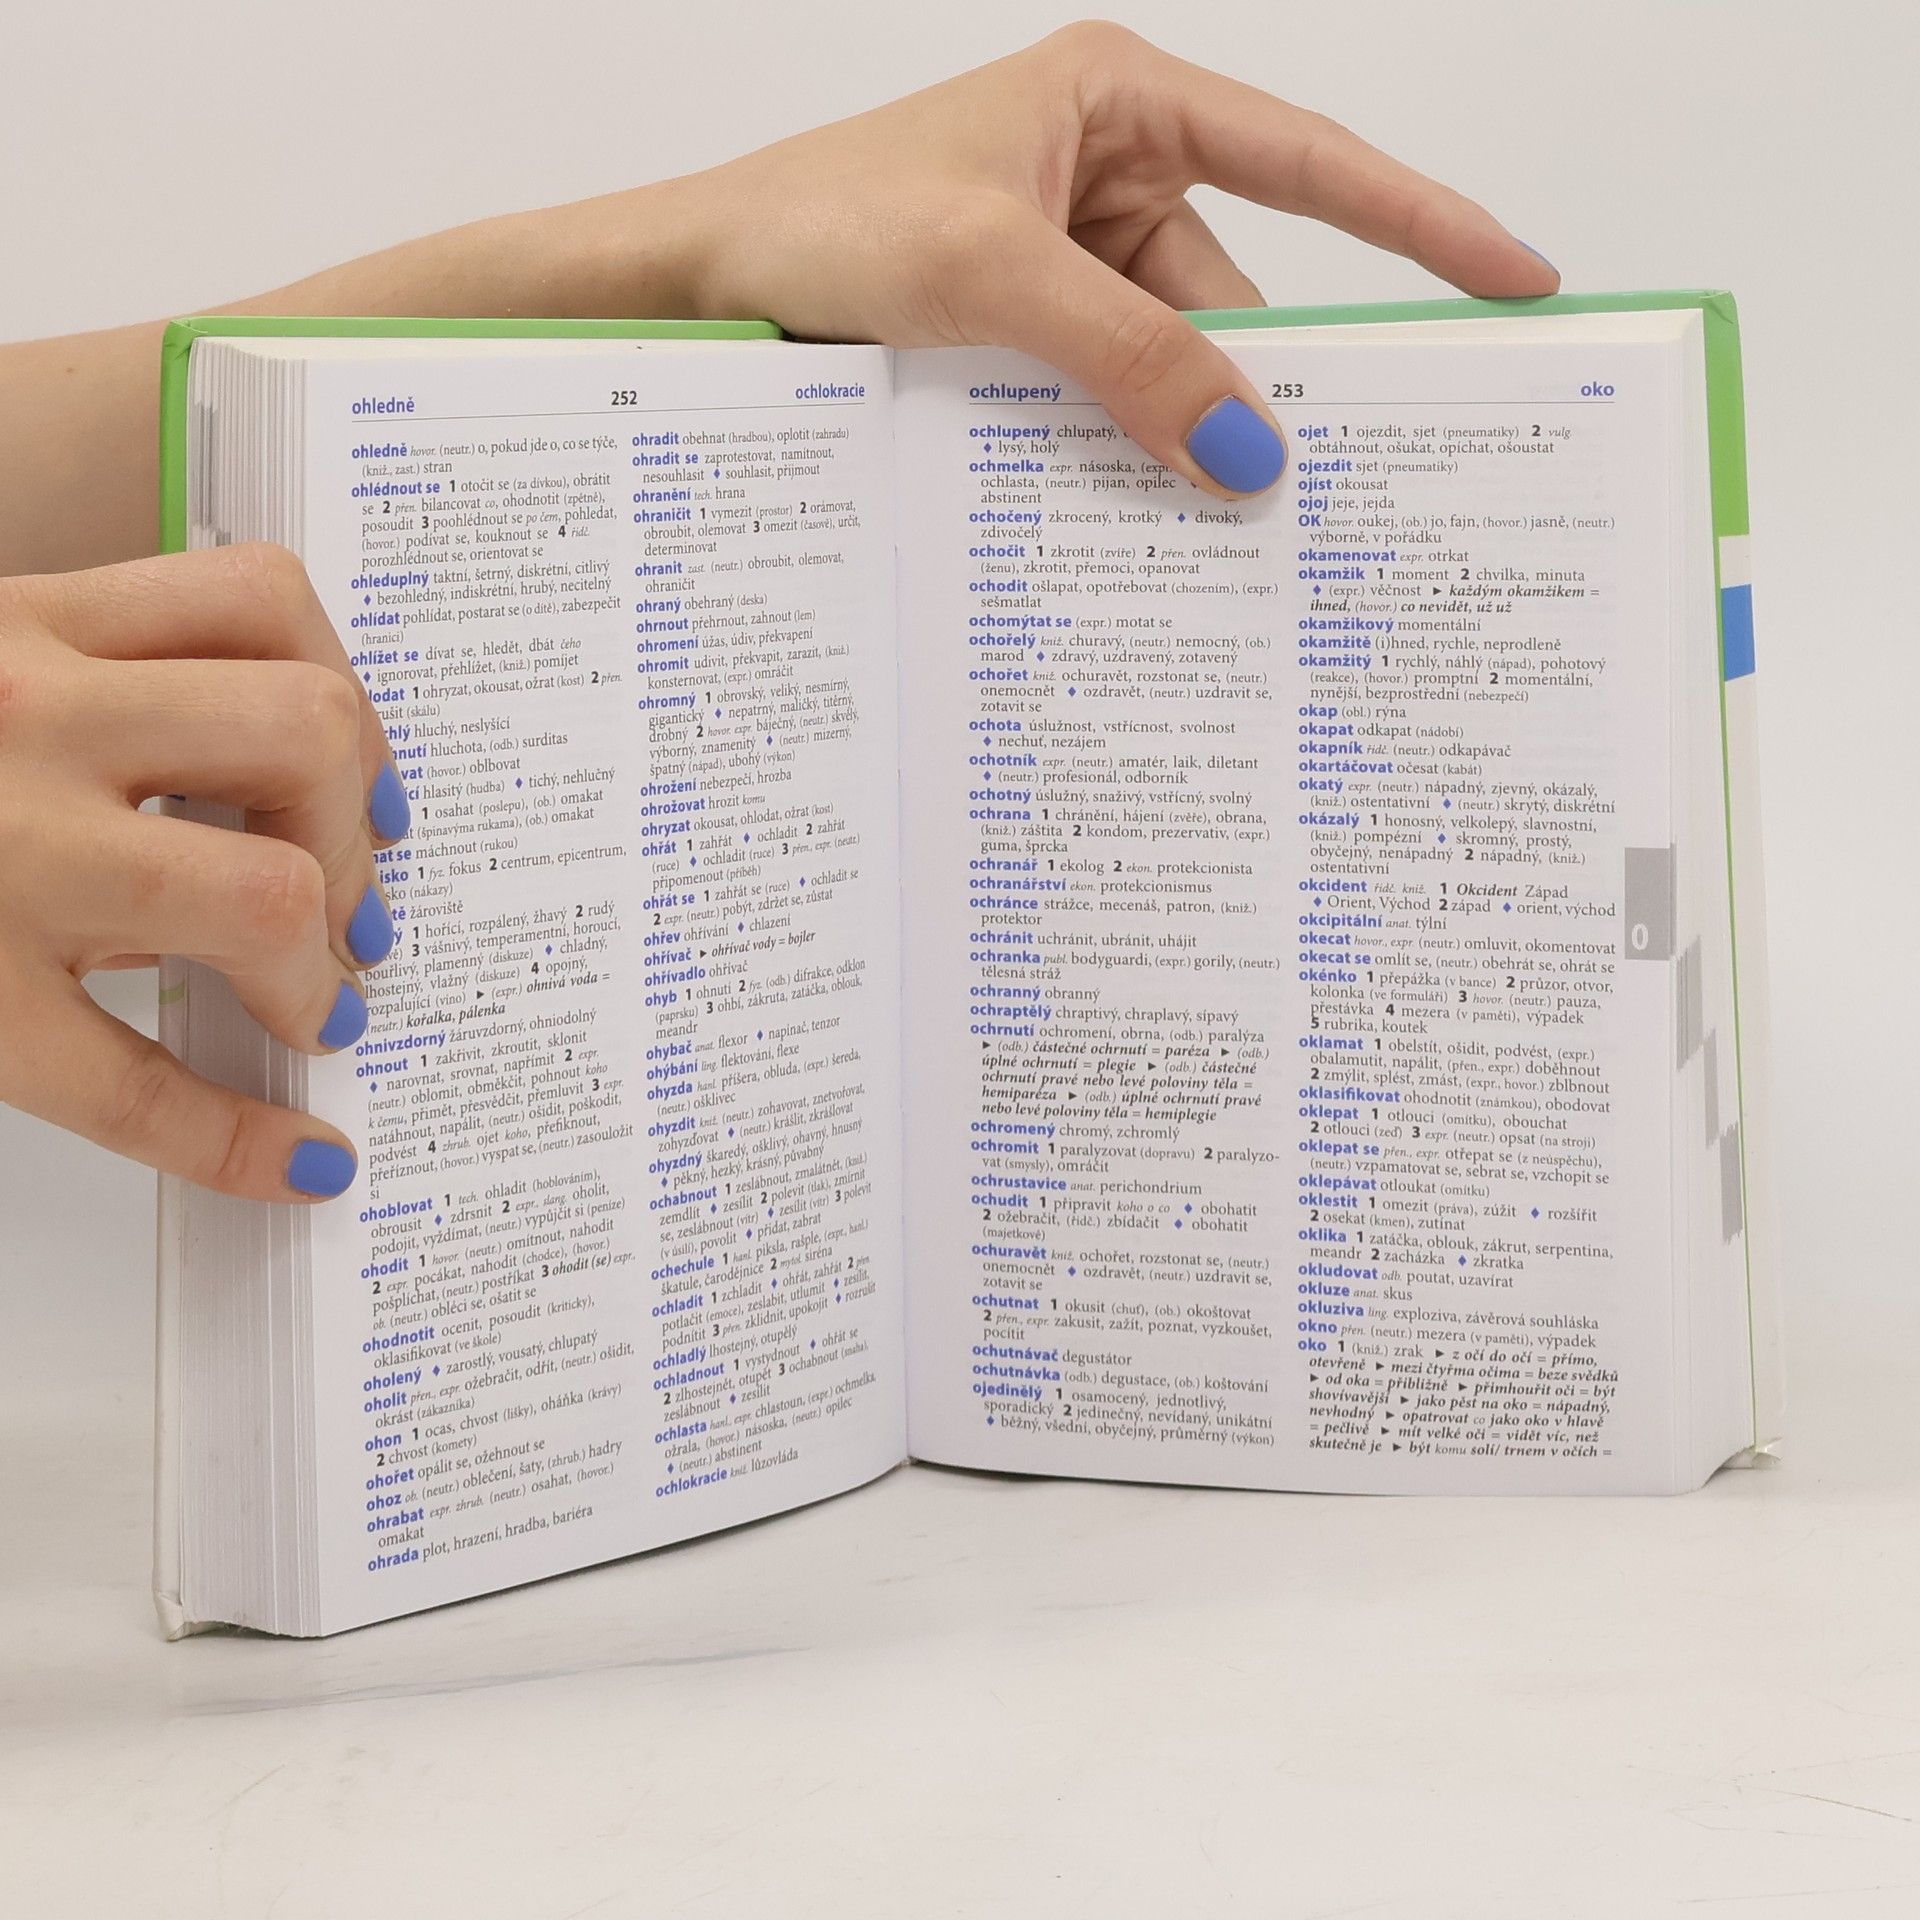 ohledně 252 ochlokracie
ohledně hovor. (neutr.) o, pokud jde o, co se týče,
(kniž., zast.) stran
ohlédnout se 1 otočit se (za dívkou), obrátit
se 2 přen. bilancovat co, ohodnotit (zpětně),
posoudit 3 poohlédnout se po čem, pohledat,
(hovor.) podívat se, kouknout se 4 řidč.
porozhlédnout se, orientovat se
ohleduplný taktní, šetrný, diskrétní, citlivý
♦ bezohledný, indiskrétní, hrubý, necitelný
ohlídat pohlídat, postarat se (o dítě), zabezpečit
(hranici)
ohlížet se dívat se, hledět, dbát čeho
♦ ignorovat, přehlížet, (kniž.) pomíjet
lodat 1 ohryzat, okousat, ožrat (kost) 2 přen.
rušit (skálu)
chlý hluchý, neslyšící
hnutí hluchota, (odb.) surditas
vat (hovor.) oblbovat
ící hlasitý (hudba) ♦ tichý, nehlučný
1 osahat (poslepu), (ob.) omakat
at (špinavýma rukama), (ob.) omakat
nat se máchnout (rukou)
isko 1 fyz. fokus 2 centrum, epicentrum,
sko (nákazy)
tě žároviště
ý 1 hořící, rozpálený, žhavý 2 rudý
vě) 3 vášnivý, temperamentní, horoucí,
bouřlivý, plamenný (diskuze) ♦ chladný,
lhostejný, vlažný (diskuze) 4 opojný,
rozpalující (víno) ► (expr.) ohnivá voda =
(neutr.) kořalka, pálenka
ohnivzdorný žáruvzdorný, ohniodolný
ohnout 1 zakřivit, zkroutit, sklonit
♦ narovnat, srovnat, napřímit 2 expr.
(neutr.) oblomit, obměkčit, pohnout koho
k čemu, přimět, přesvědčit, přemluvit 3 expr.
natáhnout, napálit, (neutr.) ošidit, poškodit,
podvést 4 zhrub. ojet koho, přefiknout,
přeříznout, (hovor.) vyspat se, (neutr.) zasouložit
si
ohoblovat 1 tech. ohladit (hoblováním),
obrousit ♦ zdrsnit 2 expr., slang. oholit,
podojit, vyždímat, (neutr.) vypůjčit si (peníze)
ohodit 1 hovor. (neutr.) omítnout, nahodit
2 expr. pocákat, nahodit (chodce), (hovor.)
pošplíchat, (neutr.) postříkat 3 ohodit (se) expr.,
ob. (neutr.) obléci se, ošatit se
ohodnotit ocenit, posoudit (kriticky),
oklasifikovat (ve škole)
oholený ♦ zarostlý, vousatý, chlupatý
oholit přen., expr. ožebračit, odřít, (neutr.) ošidit,
okrást (zákazníka)
ohon 1 ocas, chvost (lišky), oháňka (krávy)
2 chvost (komety)
ohořet opálit se, ožehnout se
ohoz ob. (neutr.) oblečení, šaty, (zhrub.) hadry
ohrabat expr. zhrub. (neutr.) osahat, (hovor.)
omakat
ohrada plot, hrazení, hradba, bariéra
ohradit obehnat (hradbou), oplotit (zahradu)
ohradit se zaprotestovat, namítnout,
nesouhlasit ♦ souhlasit, přijmout
ohranění tech. hrana
ohraničit 1 vymezit (prostor) 2 orámovat,
obroubit, olemovat 3 omezit (časově), určit,
determinovat
ohranit zast. (neutr.) obroubit, olemovat,
ohraničit
ohraný obehraný (deska)
ohrnout přehrnout, zahnout (lem)
ohromení úžas, údiv, překvapení
ohromit udivit, překvapit, zarazit, (kniž.)
konsternovat, (expr.) omráčit
ohromný 1 obrovský, veliký, nesmírný,
gigantický ♦ nepatrný, maličký, titěrný,
drobný 2 hovor. expr. báječný, (neutr.) skvělý,
výborný, znamenitý ♦ (neutr.) mizerný,
špatný (nápad), ubohý (výkon)
ohrožení nebezpečí, hrozba
ohrožovat hrozit komu
ohryzat okousat, ohlodat, ožrat (kost)
ohřát 1 zahřát ♦ ochladit 2 zahřát
(ruce) ♦ ochladit (ruce) 3 přen., expr. (neutr.)
připomenout (příběh)
ohřát se 1 zahřát se (ruce) ♦ ochladit se
2 expr. (neutr.) pobýt, zdržet se, zůstat
ohřev ohřívání ♦ chlazení
ohřívač ► ohřívač vody = bojler
ohřívadlo ohřívač
ohyb 1 ohnutí 2 fyz. (odb.) difrakce, odklon
(paprsku) 3 ohbí, zákruta, zatáčka, oblouk,
meandr
ohybač anat. flexor ♦ napínač, tenzor
ohýbání ling. flektování, flexe
ohyzda hanl. příšera, obluda, (expr.) šereda,
(neutr.) ošklivec
ohyzdit kniž. (neutr.) zohavovat, znetvořovat,
zohyzďovat ♦ (neutr.) krášlit, zkrášlovat
ohyzdný škaredý, ošklivý, ohavný, hnusný
♦ pěkný, hezký, krásný, půvabný
ochabnout 1 zeslábnout, zmalátnět, (kniž.)
zemdlít ♦ zesílit 2 polevit (tlak), zmírnit
se, zeslábnout (vítr) ♦ zesílit (vítr) 3 polevit
(v úsilí), povolit ♦ přidat, zabrat
ochechule 1 hanl. piksla, rašple, (expr., hanl.)
škatule, čarodějnice 2 mytol. siréna
ochladit 1 zchladit ♦ ohřát, zahřát 2 přen.
potlačit (emoce), zeslabit, utlumit ♦ zesílit,
podnítit 3 přen. zklidnit, upokojit ♦ rozrušit
ochladlý lhostejný, otupělý
ochladnout 1 vystydnout ♦ ohřát se
2 zlhostejnět, otupět 3 ochabnout (snaha),
zeslábnout ♦ zesílit
ochlasta hanl., expr. chlastoun, (expr.) ochmelka,
ožrala, (hovor.) násoska, (neutr.) opilec
♦ (neutr.) abstinent
ochlokracie kniž. lůzovláda
ochlupený 253 oko
ochlupený chlupatý,
♦ lysý, holý
ochmelka expr. násoska, (expr.
ochlasta, (neutr.) pijan, opilec
abstinent
ochočený zkrocený, krotký ♦ divoký,
zdivočelý
ochočit 1 zkrotit (zvíře) 2 přen. ovládnout
(ženu), zkrotit, přemoci, opanovat
ochodit ošlapat, opotřebovat (chozením), (expr.)
sešmatlat
ochomýtat se (expr.) motat se
ochořelý kniž. churavý, (neutr.) nemocný, (ob.)
marod ♦ zdravý, uzdravený, zotavený
ochořet kniž. ochuravět, rozstonat se, (neutr.)
onemocnět ♦ ozdravět, (neutr.) uzdravit se,
zotavit se
ochota úslužnost, vstřícnost, svolnost
♦ nechuť, nezájem
ochotník expr. (neutr.) amatér, laik, diletant
♦ (neutr.) profesionál, odborník
ochotný úslužný, snaživý, vstřícný, svolný
ochrana 1 chránění, hájení (zvěře), obrana,
(kniž.) záštita 2 kondom, prezervativ, (expr.)
guma, šprcka
ochranář 1 ekolog 2 ekon. protekcionista
ochranářství ekon. protekcionismus
ochránce strážce, mecenáš, patron, (kniž.)
protektor
ochránit uchránit, ubránit, uhájit
ochranka publ. bodyguardi, (expr.) gorily, (neutr.)
tělesná stráž
ochranný obranný
ochraptělý chraptivý, chraplavý, sípavý
ochrnutí ochromení, obrna, (odb.) paralýza
► (odb.) částečné ochrnutí = paréza ► (odb.)
úplné ochrnutí = plegie ► (odb.) částečné
ochrnutí pravé nebo levé poloviny těla =
hemiparéza ► (odb.) úplné ochrnutí pravé
nebo levé poloviny těla = hemiplegie
ochromený chromý, zchromlý
ochromit 1 paralyzovat (dopravu) 2 paralyzo-
vat (smysly), omráčit
ochrustavice anat. perichondrium
ochudit 1 připravit koho o co ♦ obohatit
2 ožebračit, (řidč.) zbídačit ♦ obohatit
(majetkově)
ochuravět kniž. ochořet, rozstonat se, (neutr.)
onemocnět ♦ ozdravět, (neutr.) uzdravit se,
zotavit se
ochutnat 1 okusit (chuť), (ob.) okoštovat
2 přen., expr. zakusit, zažít, poznat, vyzkoušet,
pocítit
ochutnávač degustátor
ochutnávka (odb.) degustace, (ob.) koštování
ojedinělý 1 osamocený, jednotlivý,
sporadický 2 jedinečný, nevídaný, unikátní
♦ běžný, všední, obyčejný, průměrný (výkon)
ojet 1 ojezdit, sjet (pneumatiky) 2 vulg.
obtáhnout, ošukat, opíchat, ošoustat
ojezdit sjet (pneumatiky)
ojíst okousat
ojoj jeje, jejda
OK hovor. oukej, (ob.) jo, fajn, (hovor.) jasně, (neutr.)
výborně, v pořádku
okamenovat expr. otrkat
okamžik 1 moment 2 chvilka, minuta
♦ (expr.) věčnost ► každým okamžikem =
ihned, (hovor.) co nevidět, už už
okamžikový momentální
okamžitě (i)hned, rychle, neprodleně
okamžitý 1 rychlý, náhlý (nápad), pohotový
(reakce), (hovor.) promptní 2 momentální,
nynější, bezprostřední (nebezpečí)
okap (obl.) rýna
okapat odkapat (nádobí)
okapník řidč. (neutr.) odkapávač
okartáčovat očesat (kabát)
okatý expr. (neutr.) nápadný, zjevný, okázalý,
(kniž.) ostentativní ♦ (neutr.) skrytý, diskrétní
okázalý 1 honosný, velkolepý, slavnostní,
(kniž.) pompézní ♦ skromný, prostý,
obyčejný, nenápadný 2 nápadný, (kniž.)
ostentativní
okcident řidč. kniž. 1 Okcident Západ
♦ Orient, Východ 2 západ ♦ orient, východ
okcipitální anat. týlní
okecat hovor., expr. (neutr.) omluvit, okomentovat
okecat se omlít se, (neutr.) obehrát se, ohrát se
okénko 1 přepážka (v bance) 2 průzor, otvor,
kolonka (ve formuláři) 3 hovor. (neutr.) pauza,
přestávka 4 mezera (v paměti), výpadek
5 rubrika, koutek
oklamat 1 obelstít, ošidit, podvést, (expr.)
obalamutit, napálit, (přen., expr.) doběhnout
2 zmýlit, splést, zmást, (expr., hovor.) zblbnout
oklasifikovat ohodnotit (známkou), obodovat
oklepat 1 otlouci (omítku), obouchat
2 otlouci (zeď) 3 expr. (neutr.) opsat (na stroji)
oklepat se přen., expr. otřepat se (z neúspěchu),
(neutr.) vzpamatovat se, sebrat se, vzchopit se
oklepávat otloukat (omítku)
oklestit 1 omezit (práva), zúžit ♦ rozšířit
2 osekat (kmen), zutínat
oklika 1 zatáčka, oblouk, zákrut, serpentina,
meandr 2 zacházka ♦ zkratka
okludovat odb. poutat, uzavírat
okluze anat. skus
okluziva ling. exploziva, závěrová souhláska
okno přen. (neutr.) mezera (v paměti), výpadek
oko 1 (kniž.) zrak ► z očí do očí = přímo,
otevřeně ► mezi čtyřma očima = beze svědků
► od oka = přibližně ► přimhouřit oči = být
shovívavější ► jako pěst na oko = nápadný,
nevhodný ► opatrovat co jako oko v hlavě
= pečlivě ► mít velké oči = vidět víc, než
skutečně je ► být komu solí/ trnem v očích =
O